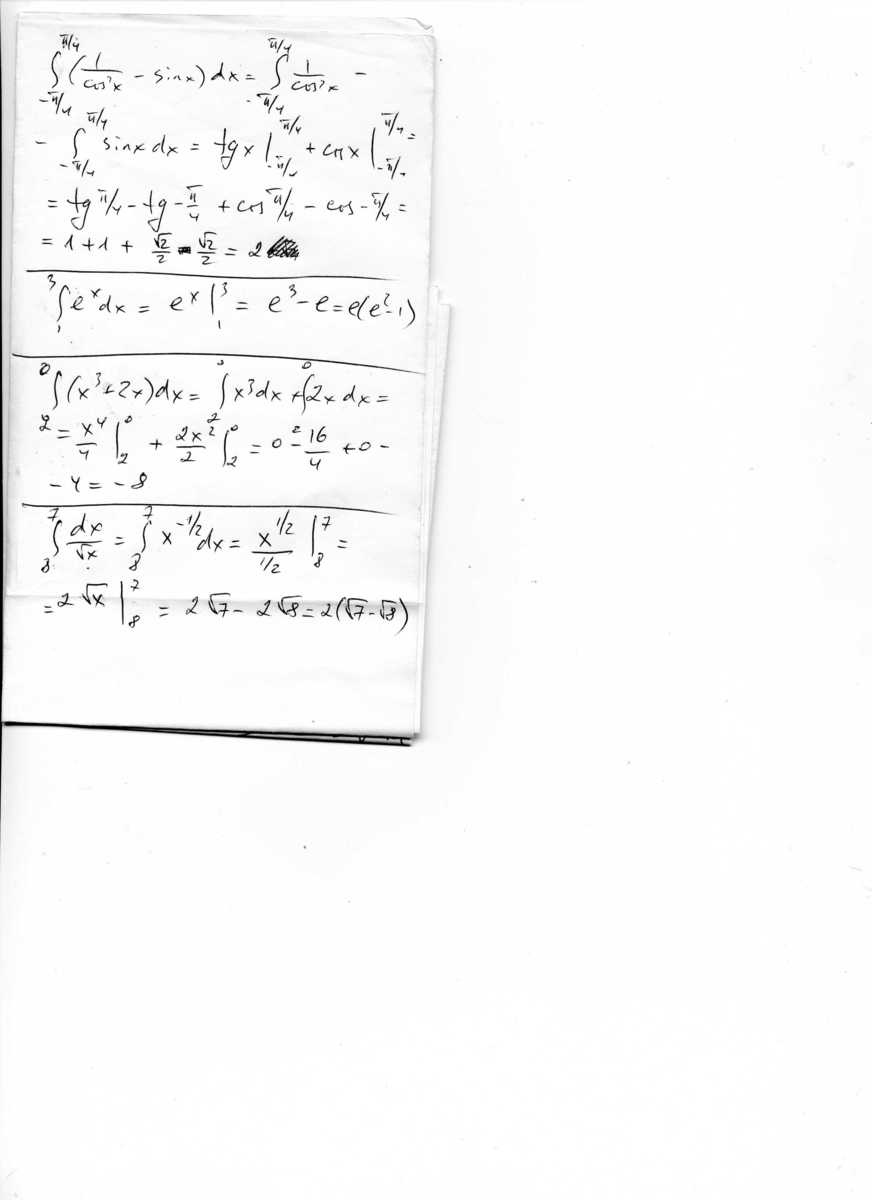 ∫_{-π/4}^{π/4} (1/cos²x - sinx) dx = ∫_{-π/4}^{π/4} 1/cos²x -
- ∫_{-π/4}^{π/4} sinx dx = tg x |_{-π/4}^{π/4} + cos x |_{-π/4}^{π/4} =
= tg π/4 - tg -π/4 + cos π/4 - cos -π/4 =
= 1 + 1 + √2/2 - √2/2 = 2
∫_1^3 e^x dx = e^x |_1^3 = e³ - e = e(e² - 1)
∫_2^0 (x³ + 2x) dx = ∫_2^0 x³ dx + ∫_2^0 2x dx =
= x⁴/4 |_2^0 + 2x²/2 |_2^0 = 0 - 16/4 + 0 -
- 4 = - 8
∫_8^7 dx/√x = ∫_8^7 x^{-1/2} dx = x^{1/2}/(1/2) |_8^7 =
= 2√x |_8^7 = 2√7 - 2√8 = 2(√7 - √8)